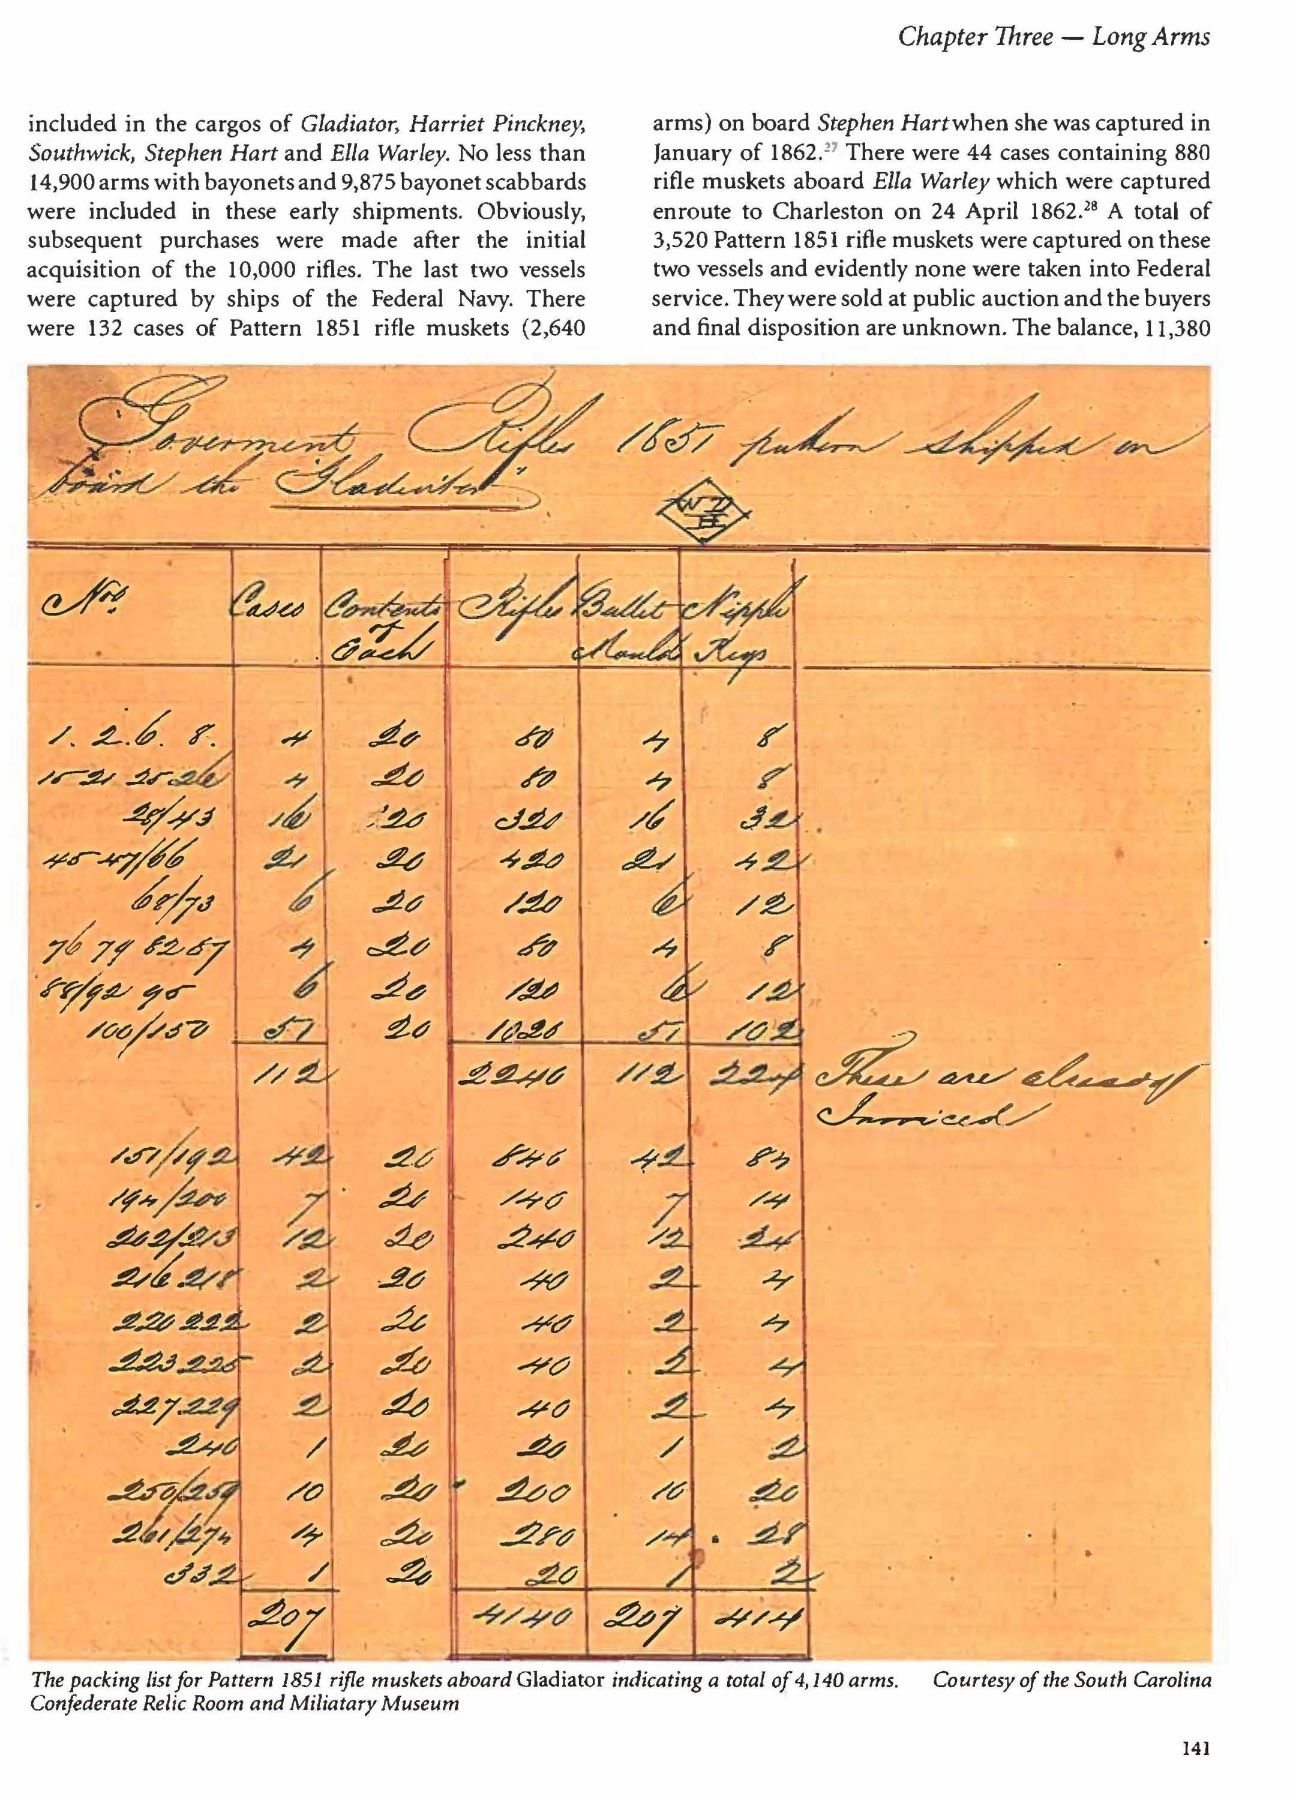 Chapter Three — Long Arms
included in the cargos of Gladiator, Harriet Pinckney,
Southwick, Stephen Hart and Ella Warley. No less than
14,900 arms with bayonets and 9,875 bayonet scabbards
were included in these early shipments. Obviously,
subsequent purchases were made after the initial
acquisition of the 10,000 rifles. The last two vessels
were captured by ships of the Federal Navy. There
were 132 cases of Pattern 1851 rifle muskets (2,640
arms) on board Stephen Hart when she was captured in
January of 1862.²⁷ There were 44 cases containing 880
rifle muskets aboard Ella Warley which were captured
enroute to Charleston on 24 April 1862.²⁸ A total of
3,520 Pattern 1851 rifle muskets were captured on these
two vessels and evidently none were taken into Federal
service. They were sold at public auction and the buyers
and final disposition are unknown. The balance, 11,380
Goverment Rifles 1851 pattern shipped on
board the "Gladiator"
WD
II
Nos. Cases Contents of Each Rifles Bullet Moulds Nipple Keys
1. 2. 6. 8. 4 20 80 4 8
15 21 25 26 4 20 80 4 8
28/43 16 20 320 16 32
45 47/66 21 20 420 21 42
68/73 6 20 120 6 12
76 79 82 87 4 20 80 4 8
88/92 95 6 20 120 6 12
100/150 51 20 1020 51 102
112 2240 112 224 These are already
Invoiced
151/192 42 20 840 42 84
194/200 7 20 140 7 14
202/213 12 20 240 12 24
216 218 2 20 40 2 4
220 222 2 20 40 2 4
223 225 2 20 40 2 4
227 229 2 20 40 2 4
240 1 20 20 1 2
250/259 10 20 200 10 20
261/274 14 20 280 14 28
332 1 20 20 1 2
207 4140 207 414
The packing list for Pattern 1851 rifle muskets aboard Gladiator indicating a total of 4,140 arms. Courtesy of the South Carolina
Confederate Relic Room and Miliatary Museum
141